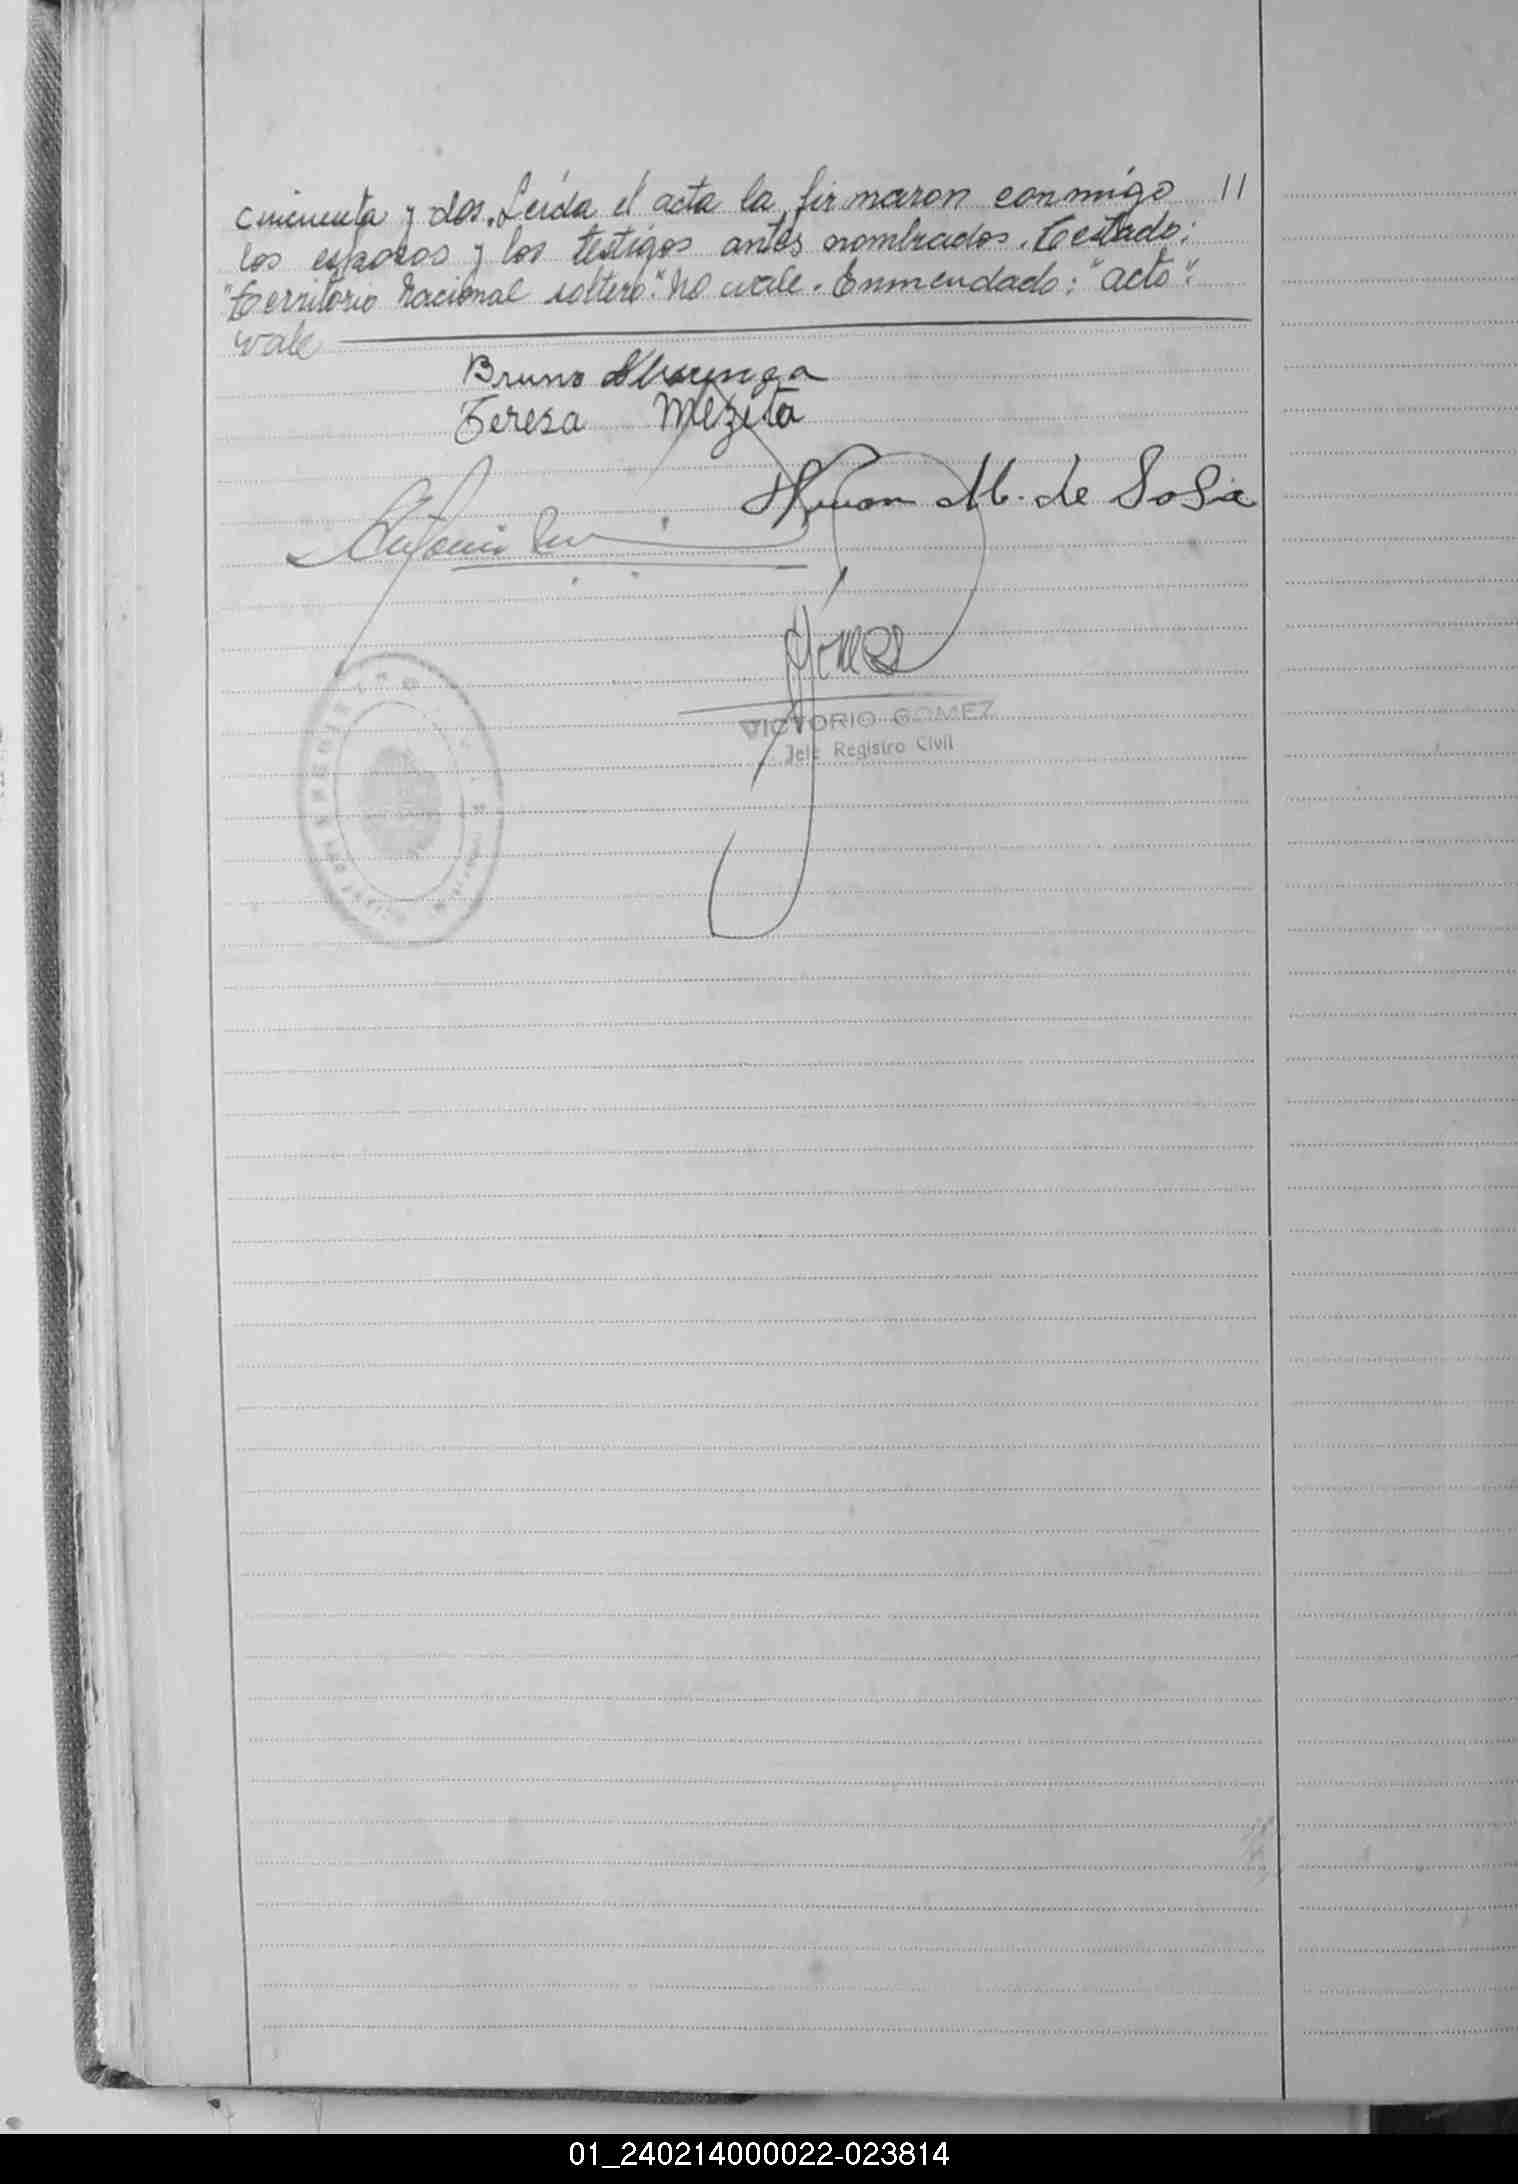 cincuenta y dos. Leída el acta la firmaron conmigo //
los esposos y los testigos antes nombrados. Testado:
"Territorio Nacional soltero": no vale. Enmendado: "acto":
vale
Bruno
Teresa Mezeta
M. de Sosa
Antonio
Gómez
VICTORIO GOMEZ
Jefe Registro Civil
REGISTRO
01_240214000022-023814